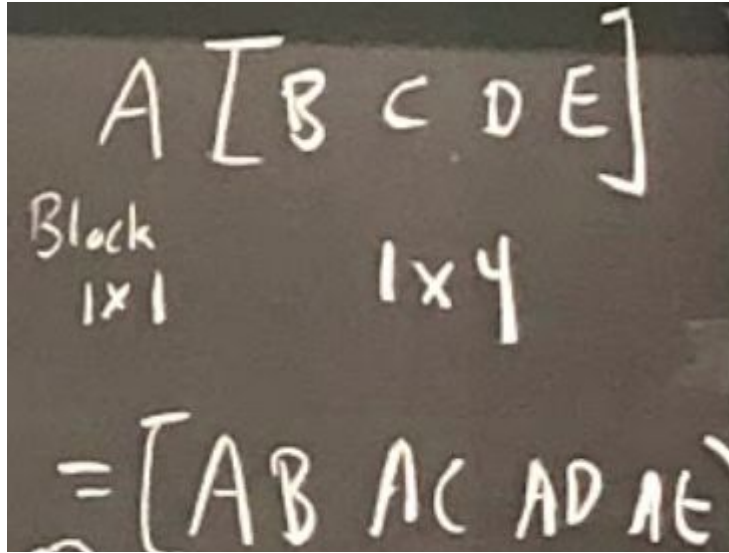 A [B C D E]
Block
1x1 1x4
= [AB AC AD AE